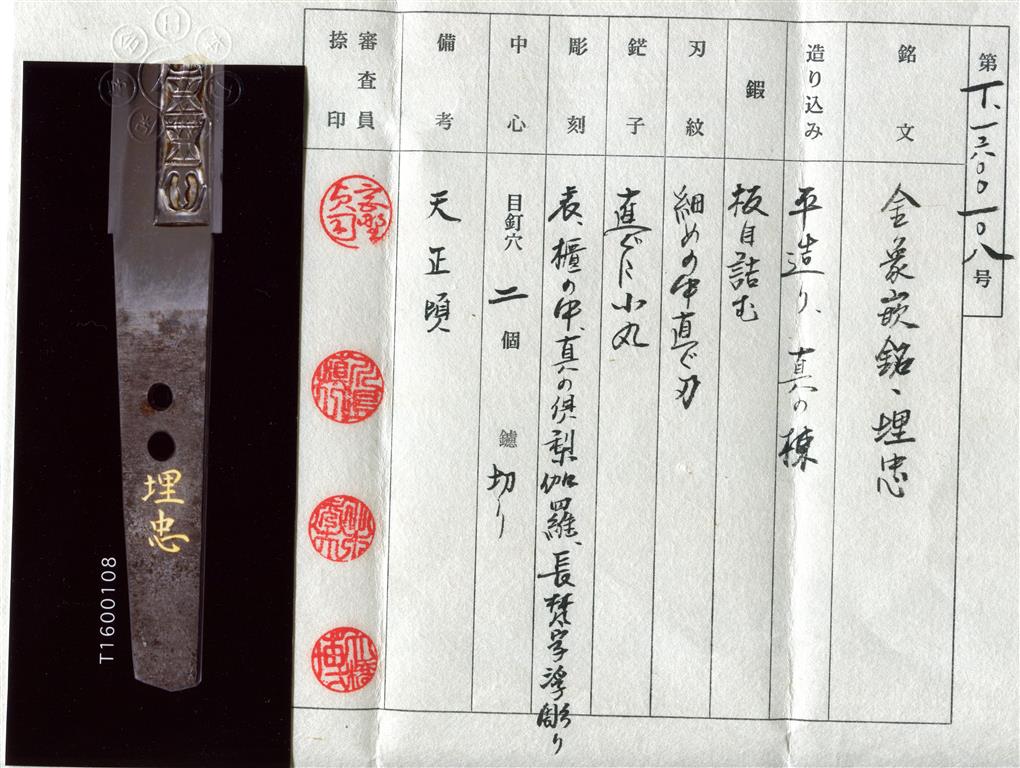 第T一六〇〇一〇八号
銘文
金象嵌銘、埋忠
造り込み
平造り、真の棟
鍜
板目詰む
刃紋
細めの中直ぐ刃
鋩子
直ぐに小丸
彫刻
表、櫃の中、真の倶梨伽羅、長梵字浮彫り
中心
目釘穴 二 個 鑢 切り
備考
天正頃
審査員
捺印
埋忠
T1600108